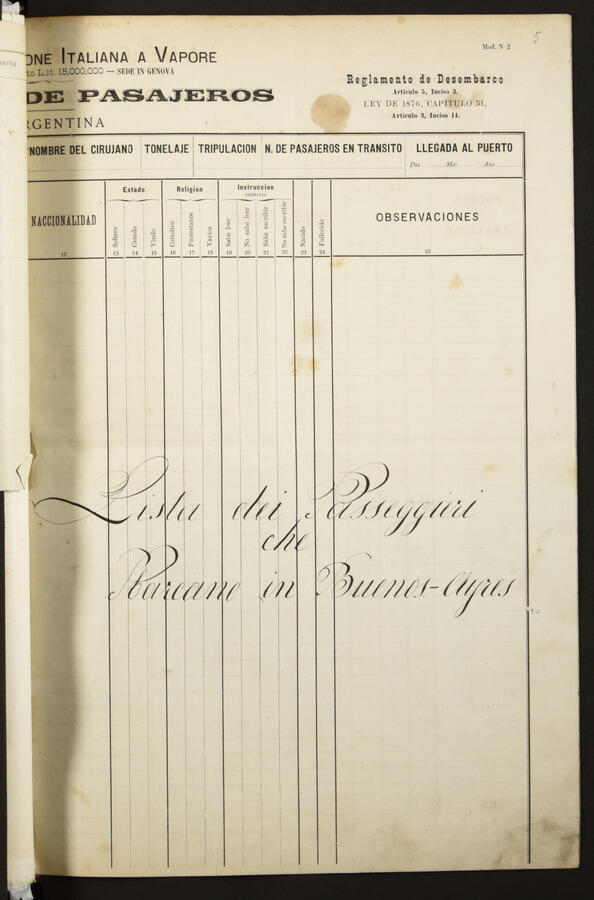 5
Mod. N 2
ONE ITALIANA A VAPORE
to L.it. 15,000,000 — SEDE IN GENOVA
DE PASAJEROS
RGENTINA
Reglamento de Desembarco
Articulo 5, Inciso 3.
LEY DE 1876, CAPITULO 51,
Articulo 3, Inciso 14.
NOMBRE DEL CIRUJANO
TONELAJE
TRIPULACION
N. DE PASAJEROS EN TRANSITO
LLEGADA AL PUERTO
Dia Mes Ano
NACCIONALIDAD
12
Estado
Soltero
Casado
Viudo
13 14 15
Religion
Catolico
Protestante
Varios
16 17 18
Instruccion
PRIMARIA
Sabe leer
No sabe leer
Sabe escribir
No sabe escribir
19 20 21 22
Nacido
Fallecido
23 24
OBSERVACIONES
25
Lista dei Passeggieri
che
Sbarcano in Buenos-Ayres